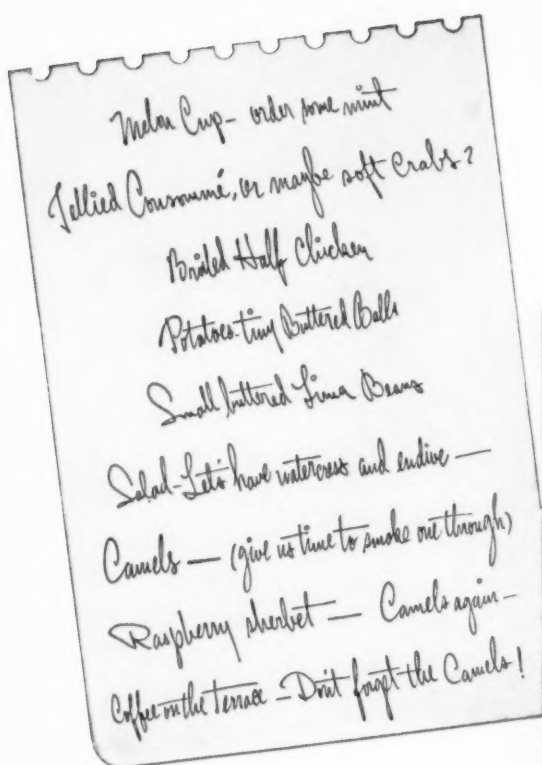 Melon Cup - order some mint
Jellied Consommé, or maybe soft crabs?
Broiled Half Chicken
Potatoes - tiny Buttered Balls
Small buttered Lima Beans
Salad - Let's have watercress and endive —
Camels — (give us time to smoke one through)
Raspberry sherbet — Camels again —
Coffee on the terrace - Don't forget the Camels!